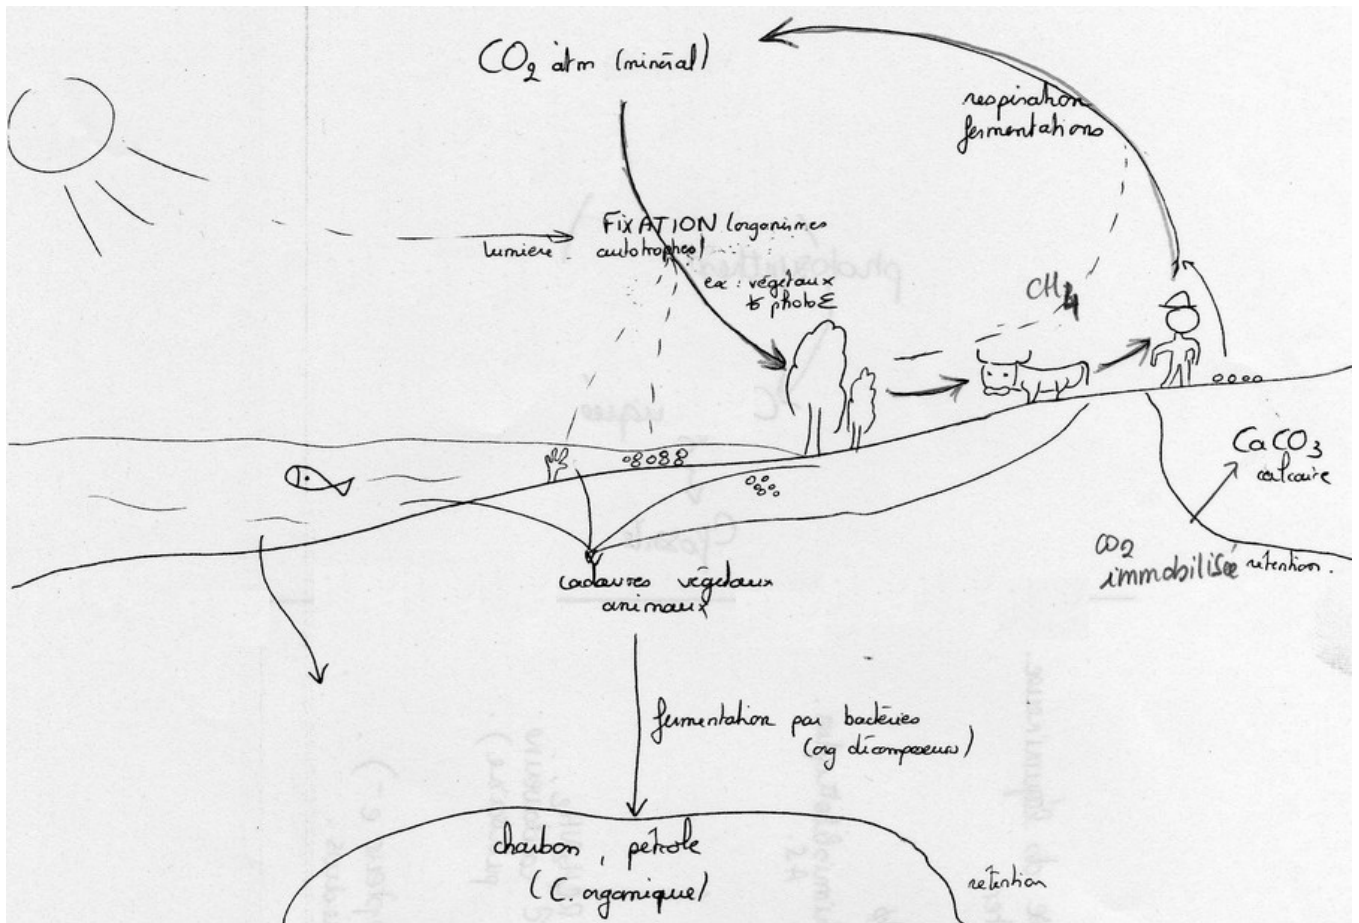 CO2 atm (minéral)
respiration
fermentations
lumière
FIXATION (organismes
autotrophes)
ex : végétaux
photoΣ
CH4
CaCO3
calcaire
CO2
immobilisée
rétention.
cadavres végétaux
animaux
fermentation par bactéries
(org décomposeurs)
charbon, pétrole
(C. organique)
rétention